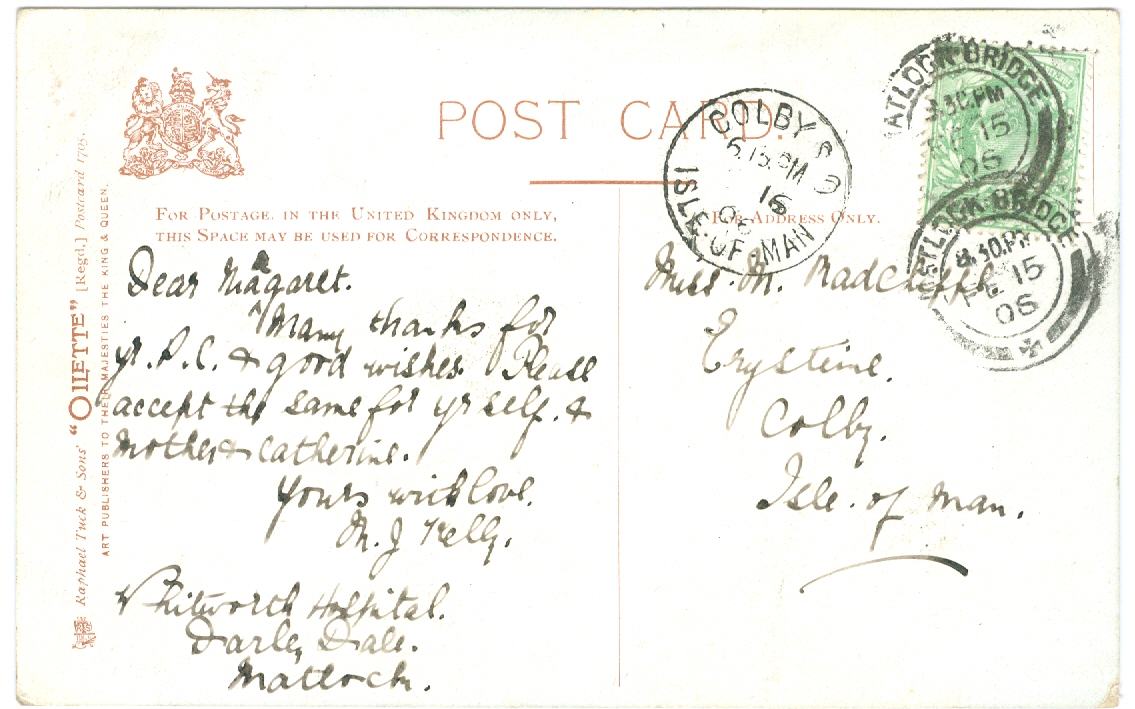 POST CARD.
FOR POSTAGE IN THE UNITED KINGDOM ONLY,
THIS SPACE MAY BE USED FOR CORRESPONDENCE.
FOR ADDRESS ONLY.
"OILETTE" [Regd.] Postcard 1705.
Raphael Tuck & Sons'
ART PUBLISHERS TO THEIR MAJESTIES THE KING & QUEEN.
Dear Magaret.
Many thanks for
yr. P.C. & good wishes. Please
accept the same for yr self. &
Mother & Catherine.
Yours with love.
M. J Kelly.
Whitworth Hospital.
Darley Dale.
Matlock.
Miss. M. Radcliffe
Crysteine.
Colby.
Isle. of Man.
COLBY
6.15.PM
16
06
ISLE.OF.MAN
ATLOCK BRIDGE
8.30.PM
15
06
ATLOCK BRIDGE
8.30.PM
FE 15
06